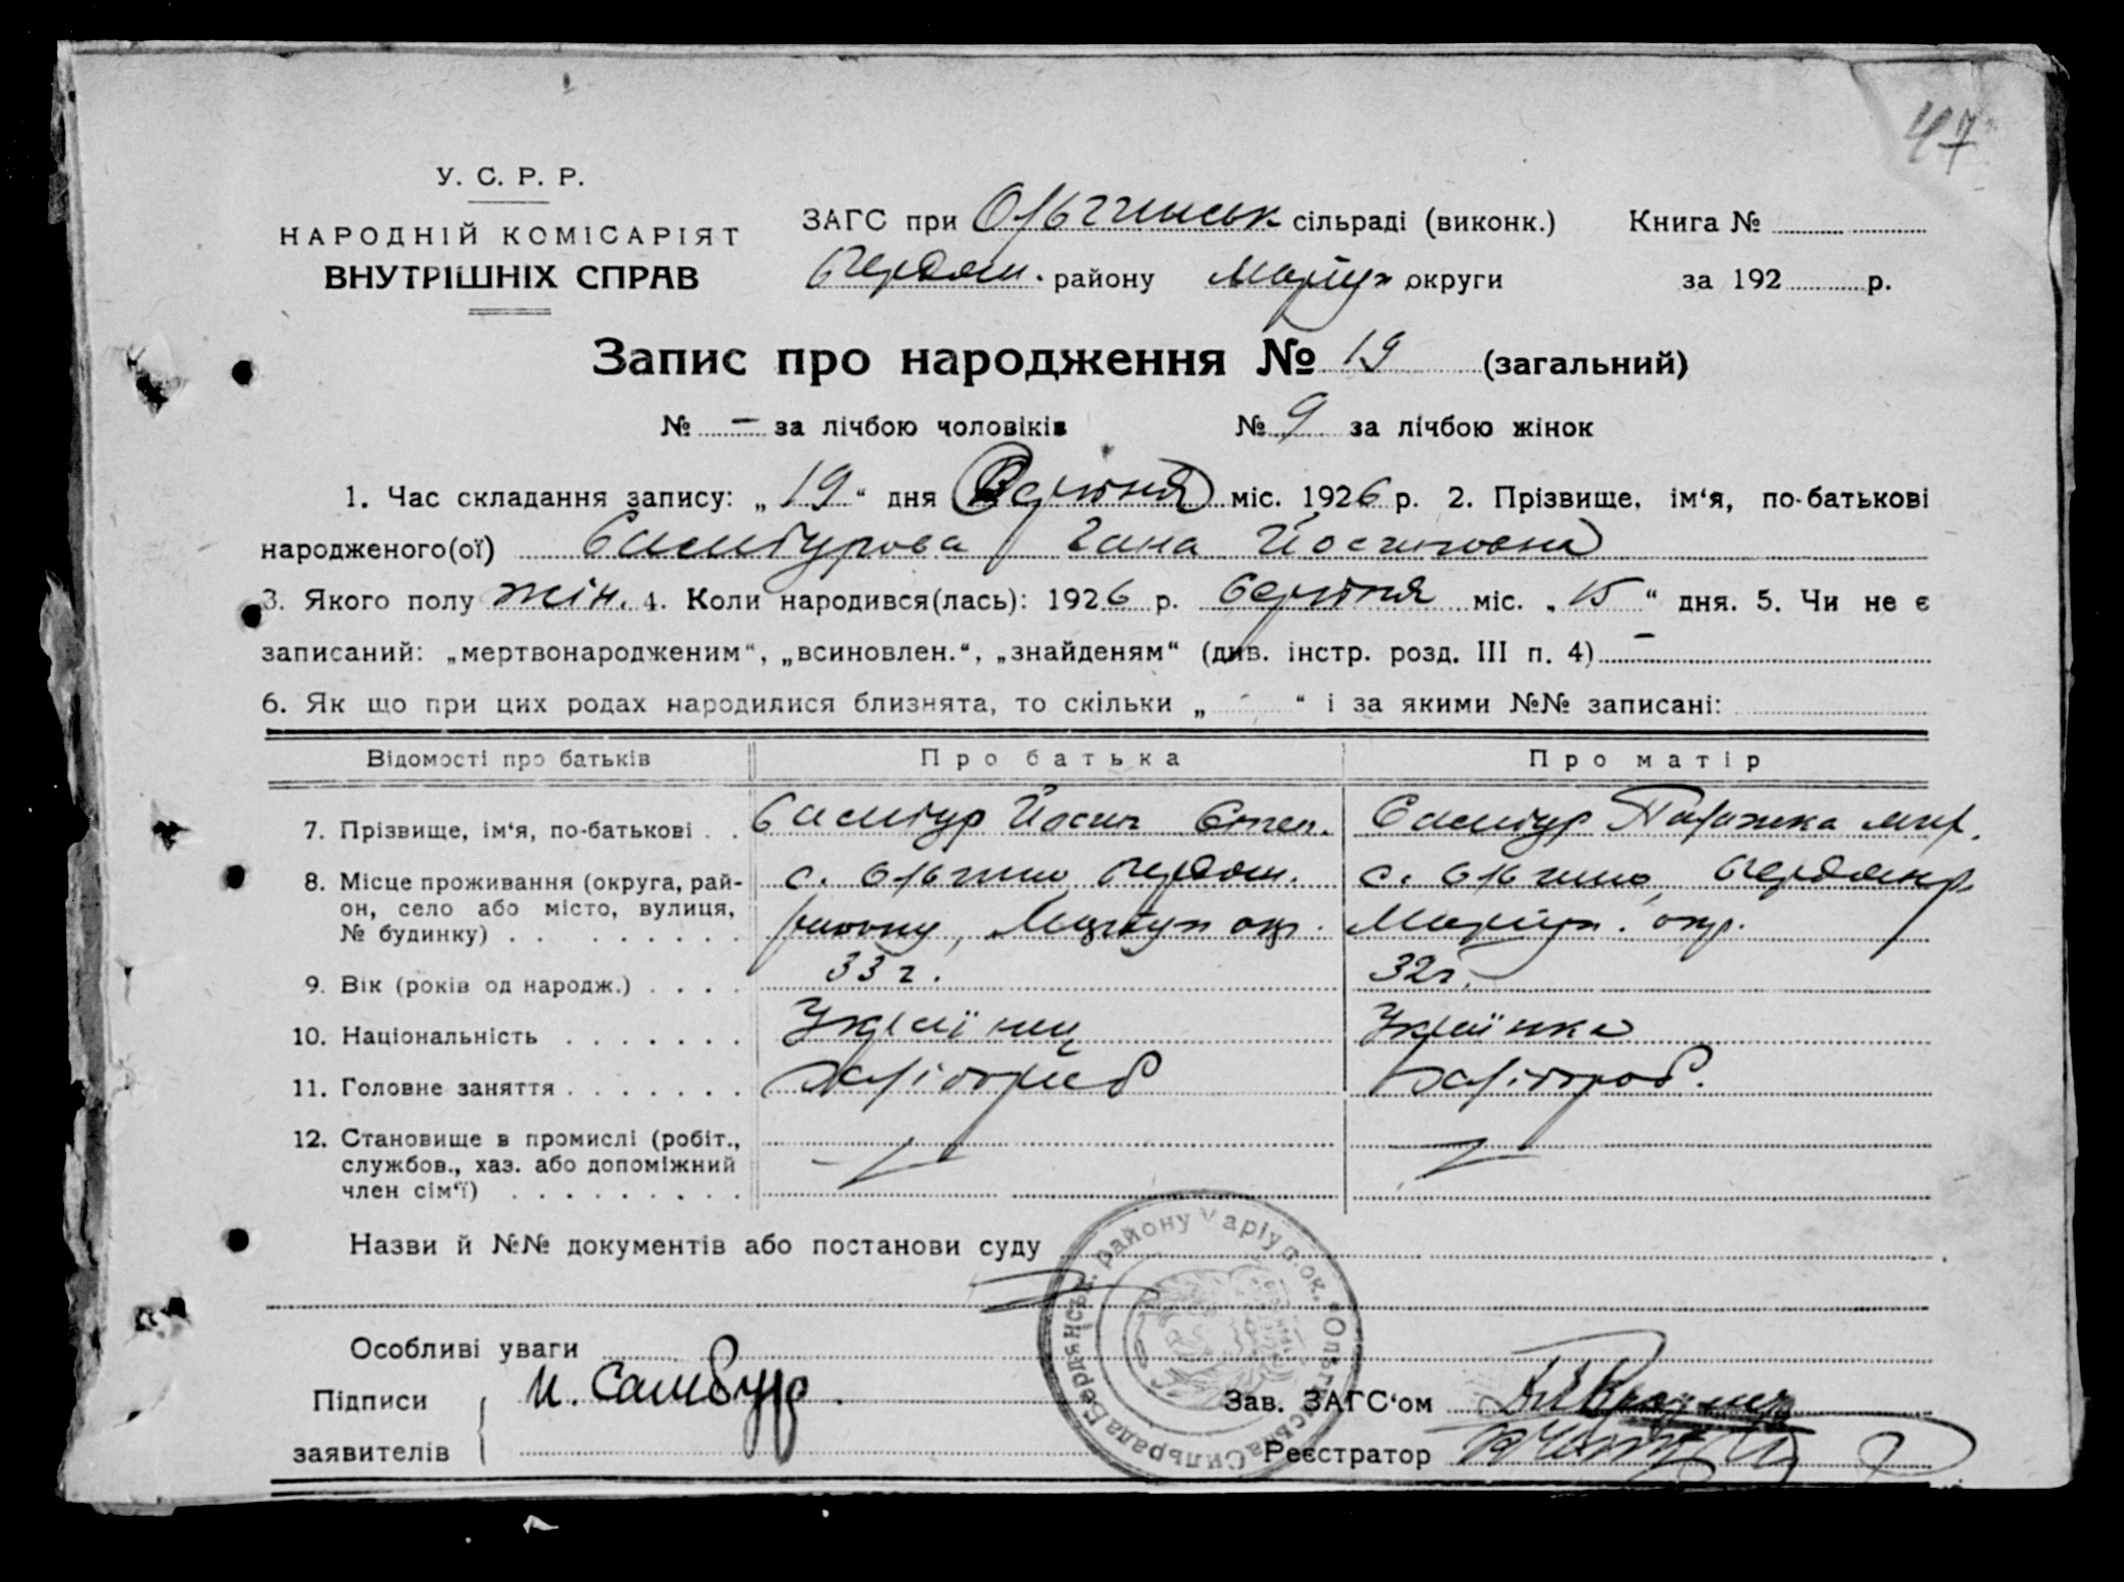 47
У. С. Р. Р.
НАРОДНІЙ КОМІСАРІЯТ
ВНУТРІШНІХ СПРАВ
ЗАГС при Ольгинськ сільраді (виконк.) Книга №
Бердян. району Маріуп округи за 192 р.
Запис про народження № 19 (загальний)
№ — за лічбою чоловіків № 9 за лічбою жінок
1. Час складання запису: „19“ дня Серпня міс. 1926 р. 2. Прізвище, ім‘я, по-батькові
народженого(ої) Самбурова Ганна Йосиповна
3. Якого полу жін. 4. Коли народився(лась): 1926 р. Серпня міс. „15“ дня. 5. Чи не є
записаний: „мертвонародженим“, „всиновлен.“, „знайденям“ (див. інстр. розд. III п. 4) —
6. Як що при цих родах народилися близнята, то скільки „ “ і за якими №№ записані:
Відомості про батьків Про батька Про матір
7. Прізвище, ім‘я, по-батькові . . Самбур Йосип Степ. Самбур
8. Місце проживання (округа, рай- с. Ольгино Бердян. с. Ольгино,
он, село або місто, вулиця, району, Маріуп окр. Маріуп. окр.
№ будинку) . . . . . . . . .
9. Вік (років од народж.) . . . . 33 г. 32 г.
10. Національність . . . . . . . Українец Українка
11. Головне заняття . . . . . . . Хлібороб Хлібороб.
12. Становище в промислі (робіт.,
службов., хаз. або допоміжний
член сім‘ї) . . . . . . . . .
Назви й №№ документів або постанови суду
Особливі уваги
Підписи И. Самбур. Зав. ЗАГС‘ом
заявителів Реєстратор
Бердянськ. району Маріуп. ок. Ольгинська Сильрада